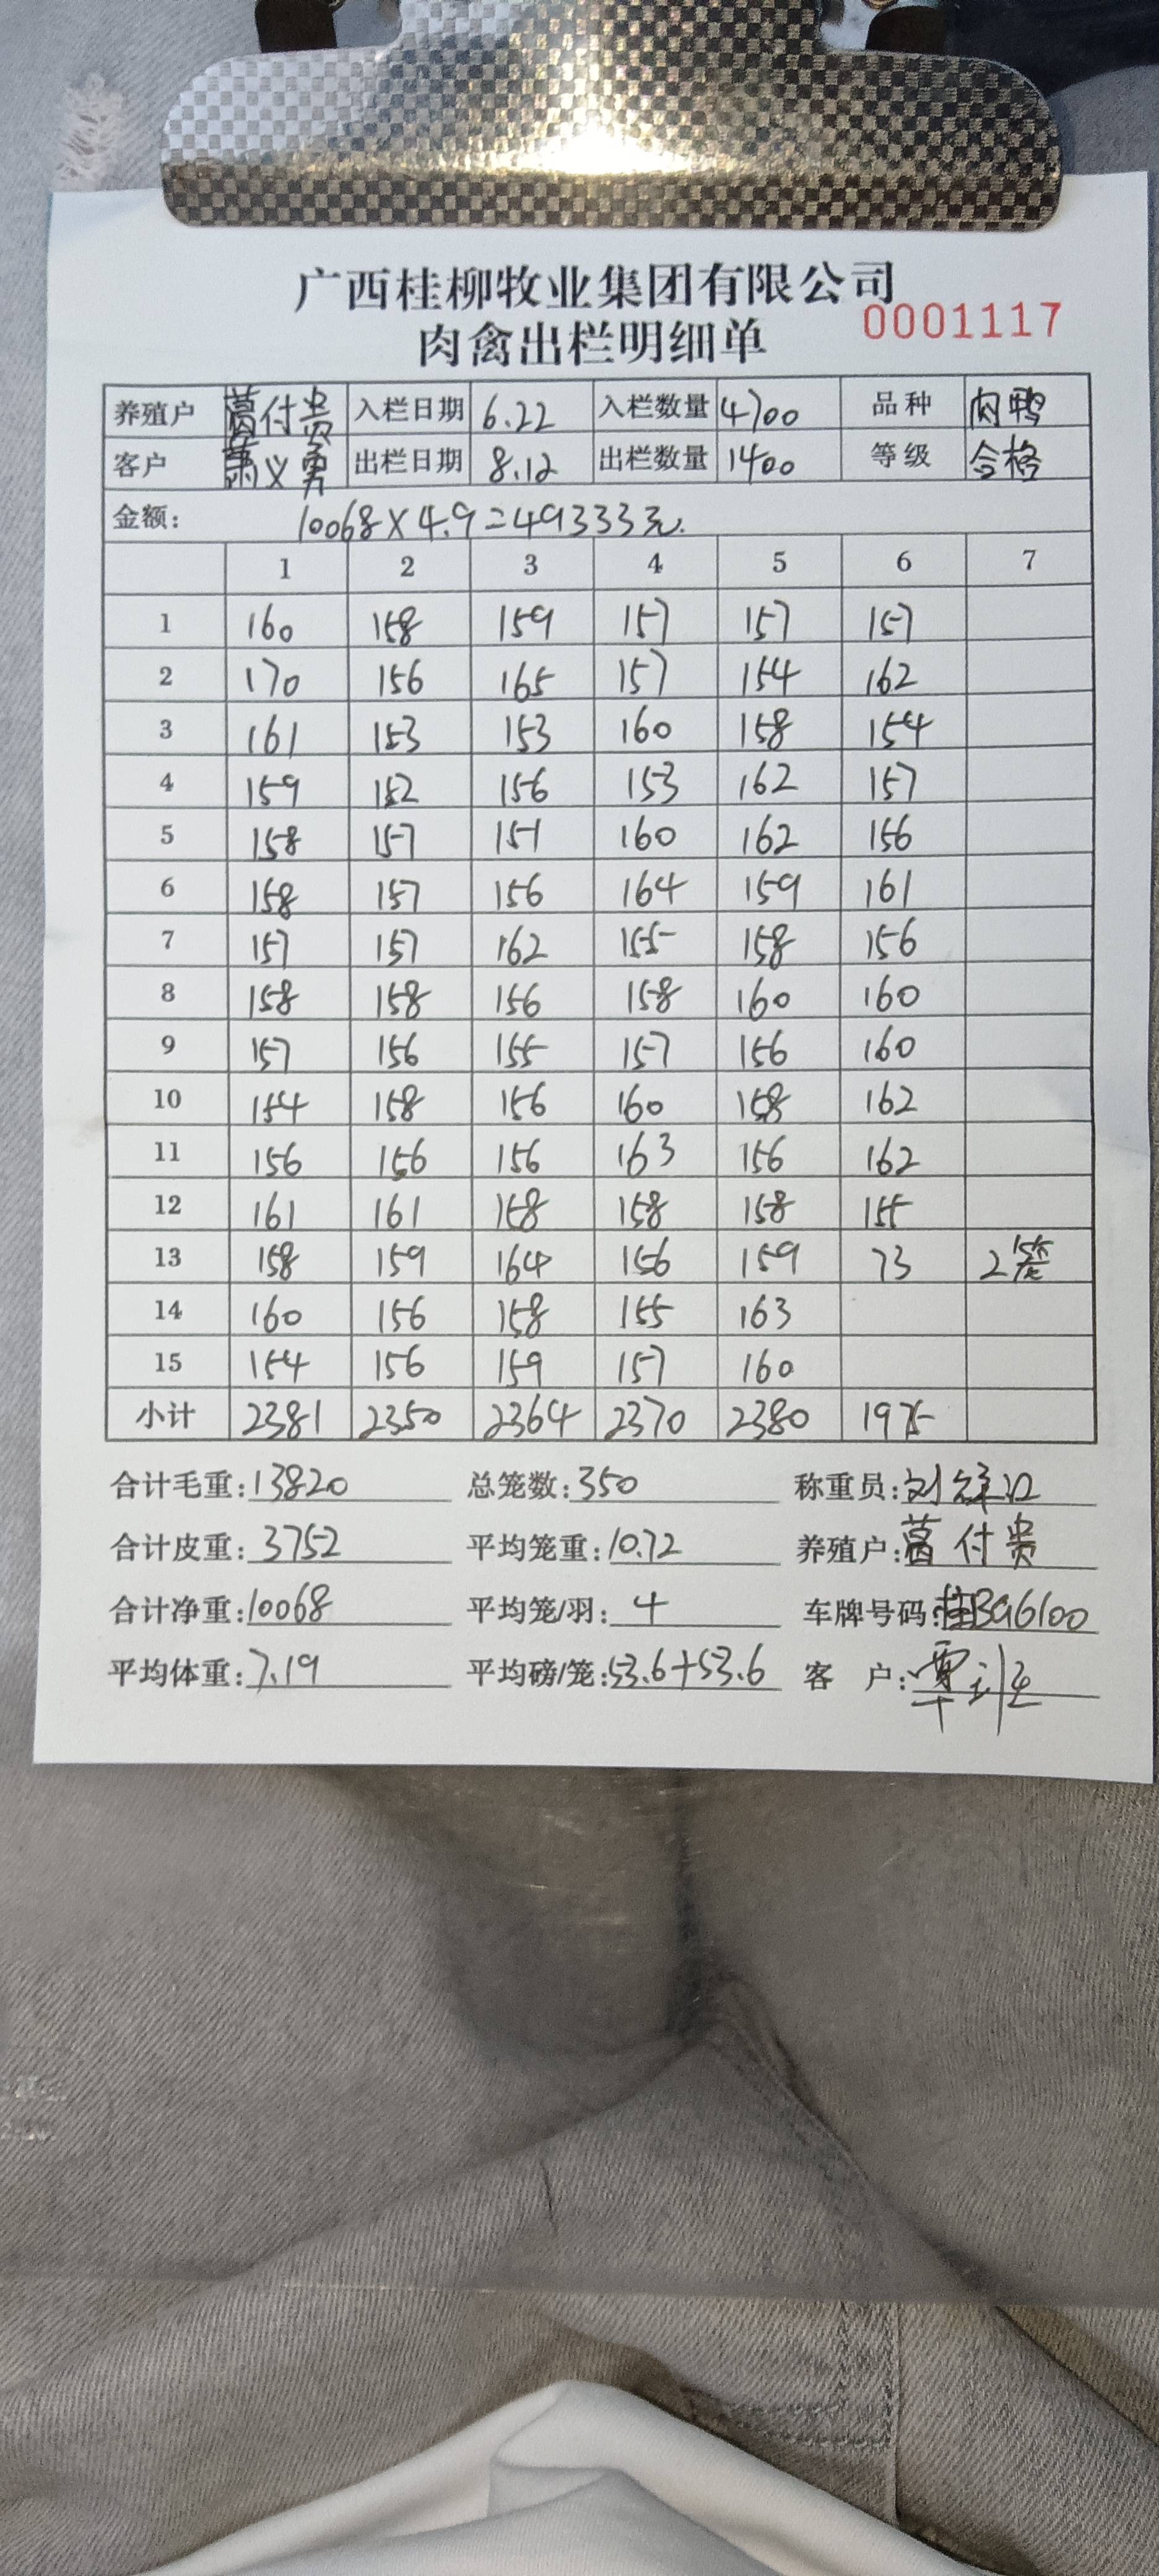 广西桂柳牧业集团有限公司
肉禽出栏明细单 0001117
养殖户 葛付贵 入栏日期 6.22 入栏数量 4700 品种 肉鸭
客户 萧义勇 出栏日期 8.12 出栏数量 1400 等级 合格
金额: 10068×4.9=49333元.
1 2 3 4 5 6 7
1 160 158 159 157 157 157
2 170 156 165 157 154 162
3 161 153 153 160 158 154
4 159 152 156 153 162 157
5 158 157 151 160 162 156
6 158 157 156 164 159 161
7 157 157 162 155 158 156
8 158 158 156 158 160 160
9 157 156 155 157 156 160
10 154 158 156 160 158 162
11 156 156 156 163 156 162
12 161 161 158 158 158 155
13 158 159 164 156 159 73 2
14 160 156 158 155 163
15 154 156 159 157 160
小计 2381 2350 2364 2370 2380 1975
合计毛重:13820 总笼数:350 称重员:刘
合计皮重:3752 平均笼重:10.72 养殖户:葛付贵
合计净重:10068 平均笼/羽:4 车牌号码:桂BG6100
平均体重:7.19 平均磅/笼:53.6+53.6 客 户:覃